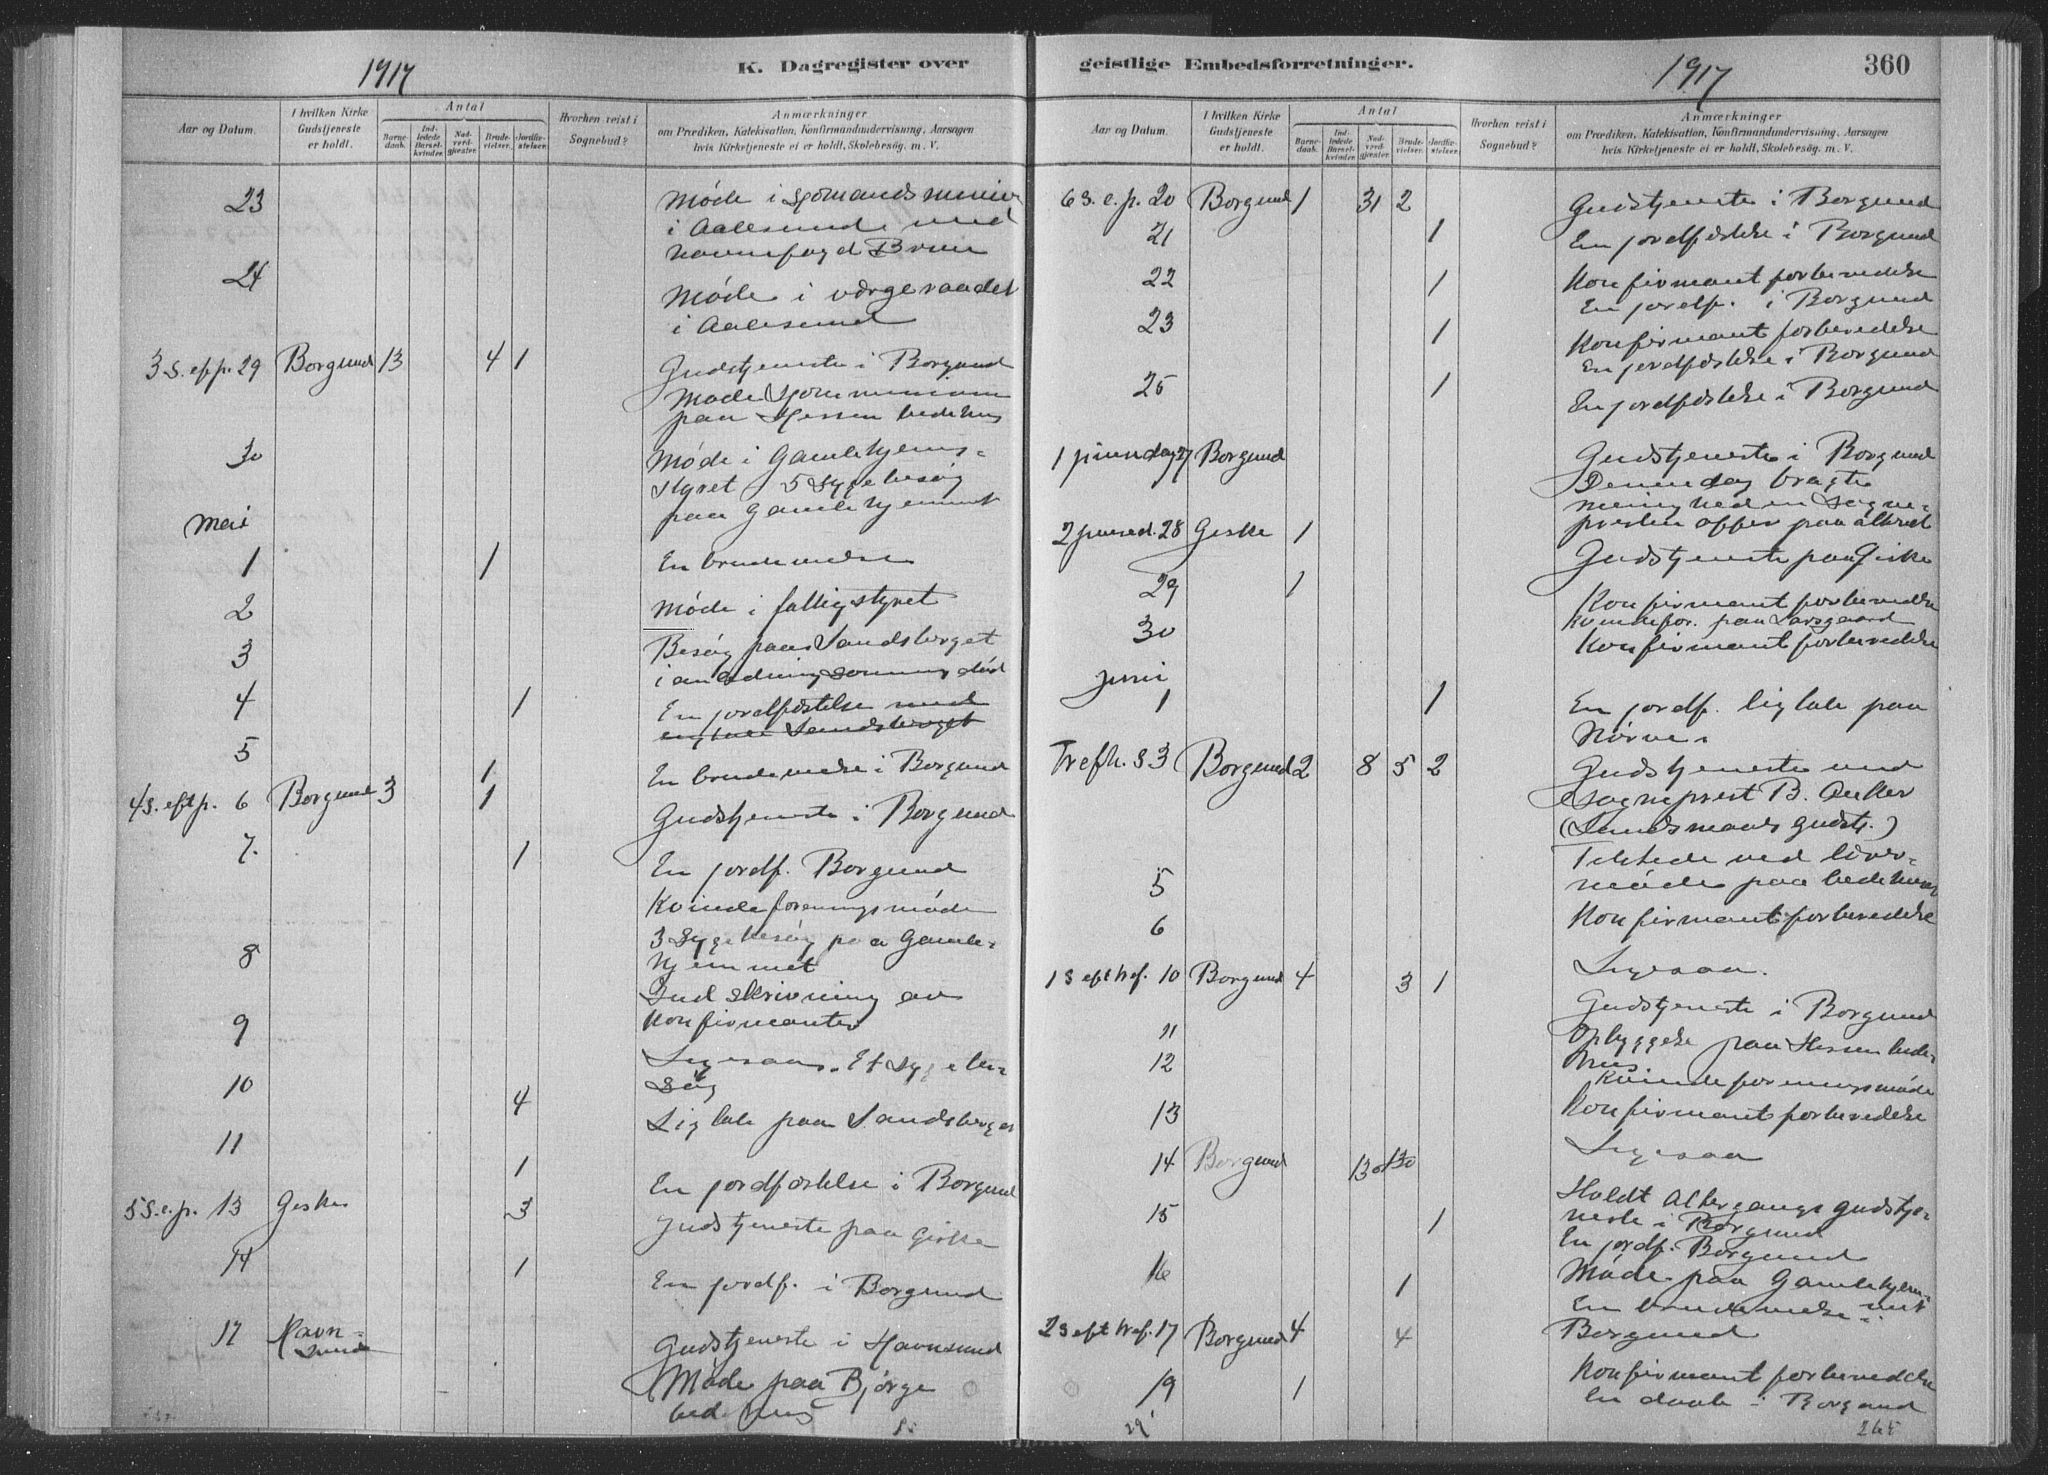 1917
K. Dagregister over
Aar og Datum.
I hvilken Kirke Gudstjeneste er holdt.
Antal
Barnedaab.
Indledede Barselkvinder.
Nadverdgjæster.
Brudevielser.
Jordfæstelser.
Hvorhen reist i Sognebud?
Anmærkninger
om Prædiken, Katekisation, Konfirmandundervisning, Aarsagen
hvis Kirketjeneste ei er holdt, Skolebesøg. m. V.
23 Møde i
i Aalesund med
havnefogd Brun
24 Møde i værgeraadet
i Aalesund
3 S. ef p. 29 Borgund 13 4 1 Gudstjeneste i Borgund
Møde
paa Hessen bedehus
30 Møde i Gamlehjems-
styret 5 Sygebesøg
paa Gamlehjemmet
Mai
1 1 En brudevielse
2 Møde i fattigstyret
3 Besøg paa Sandsberget
i anledning død
4 1 En jordfæstelse med
Sandsberget
5 1 En brudevielse i Borgund
4 S. eft p. 6 Borgund 3 1 Gudstjeneste i Borgund
7. 1 En jordf. Borgund
Kvindeforeningsmøde
8 3 Sygebesøg paa Gamle-
hjemmet
Indskrivning av
9 Konfirmanter
Et Sygebe-
10 søg
4 Ligtale paa Sandsberget
11
1 En jordfæstelse i Borgund
5 S. e. p. 13 Giske 3 Gudstjeneste paa Giske
14 1 En jordf. i Borgund
17 Havn-
sund Gudstjeneste i Havnsund
Møde paa Bjørge
bedehus
geistlige Embedsforretninger.
1917
360
Aar og Datum.
I hvilken Kirke Gudstjeneste er holdt.
Antal
Barnedaab.
Indledede Barselkvinder.
Nadverdgjæster.
Brudevielser.
Jordfæstelser.
Hvorhen reist i Sognebud?
Anmærkninger
om Prædiken, Katekisation, Konfirmandundervisning, Aarsagen
hvis Kirketjeneste ei er holdt, Skolebesøg. m. V.
6 S. e. p. 20 Borgund 1 31 2 Gudstjeneste i Borgund
21 1 En jordfæstelse i Borgund
22 1 Konfirmantforberedelse
En jordf. i Borgund
23 1 Konfirmantforberedelse
En jordfæstelse i Borgund
25 1 En jordfæstelse i Borgund
1 pinsedag 27 Borgund Gudstjeneste i Borgund
Denne dag bragte
menigheden Sogne-
presten offer paa alteret
2 pinsed. 28 Giske 1 Gudstjeneste paa Giske
29 1 Konfirmantforberedelse
Kvindefor. paa Larsgaard
30 Konfirmantforberedelse
Juni
1 1 En jordf. ligtale paa
Nørve
Trefh. S 3 Borgund 2 8 5 2 Gudstjeneste ved
Sogneprest B. Anker
(Landsmaals gudstj.)
Tilstede ved
5 møde paa bedehuset
6 Konfirmantforberedelse
1 S eft tref. 10 Borgund 4 3 1 Gudstjeneste i Borgund
11 Opbyggelse paa Hessen bede-
hus
12 Kvindeforeningsmøde
13 Konfirmantforberedelse
14 Borgund 130 130 Holdt Altergangs gudstje-
neste i Borgund
15 1 En jordf. Borgund
16 1 Møde paa Gamlehjem-
met
En brudevielse i
2 S eft tref. 17 Borgund 4 4 Borgund
Konfirmantforberedelse
19 1 En daab i Borgund
265